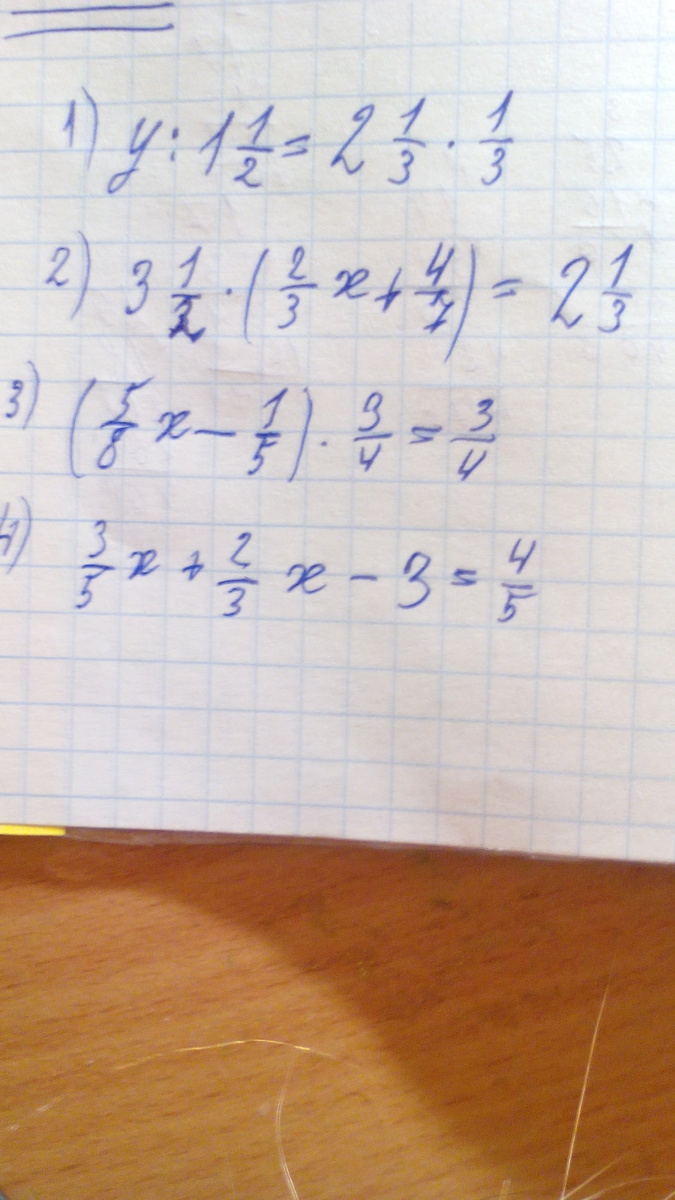 1) y : 1 1/2 = 2 1/3 · 1/3
2) 3 1/2 · (2/3 x + 4/7) = 2 1/3
3) (5/8 x – 1/5) · 3/4 = 3/4
4) 3/5 x + 2/3 x – 3 = 4/5